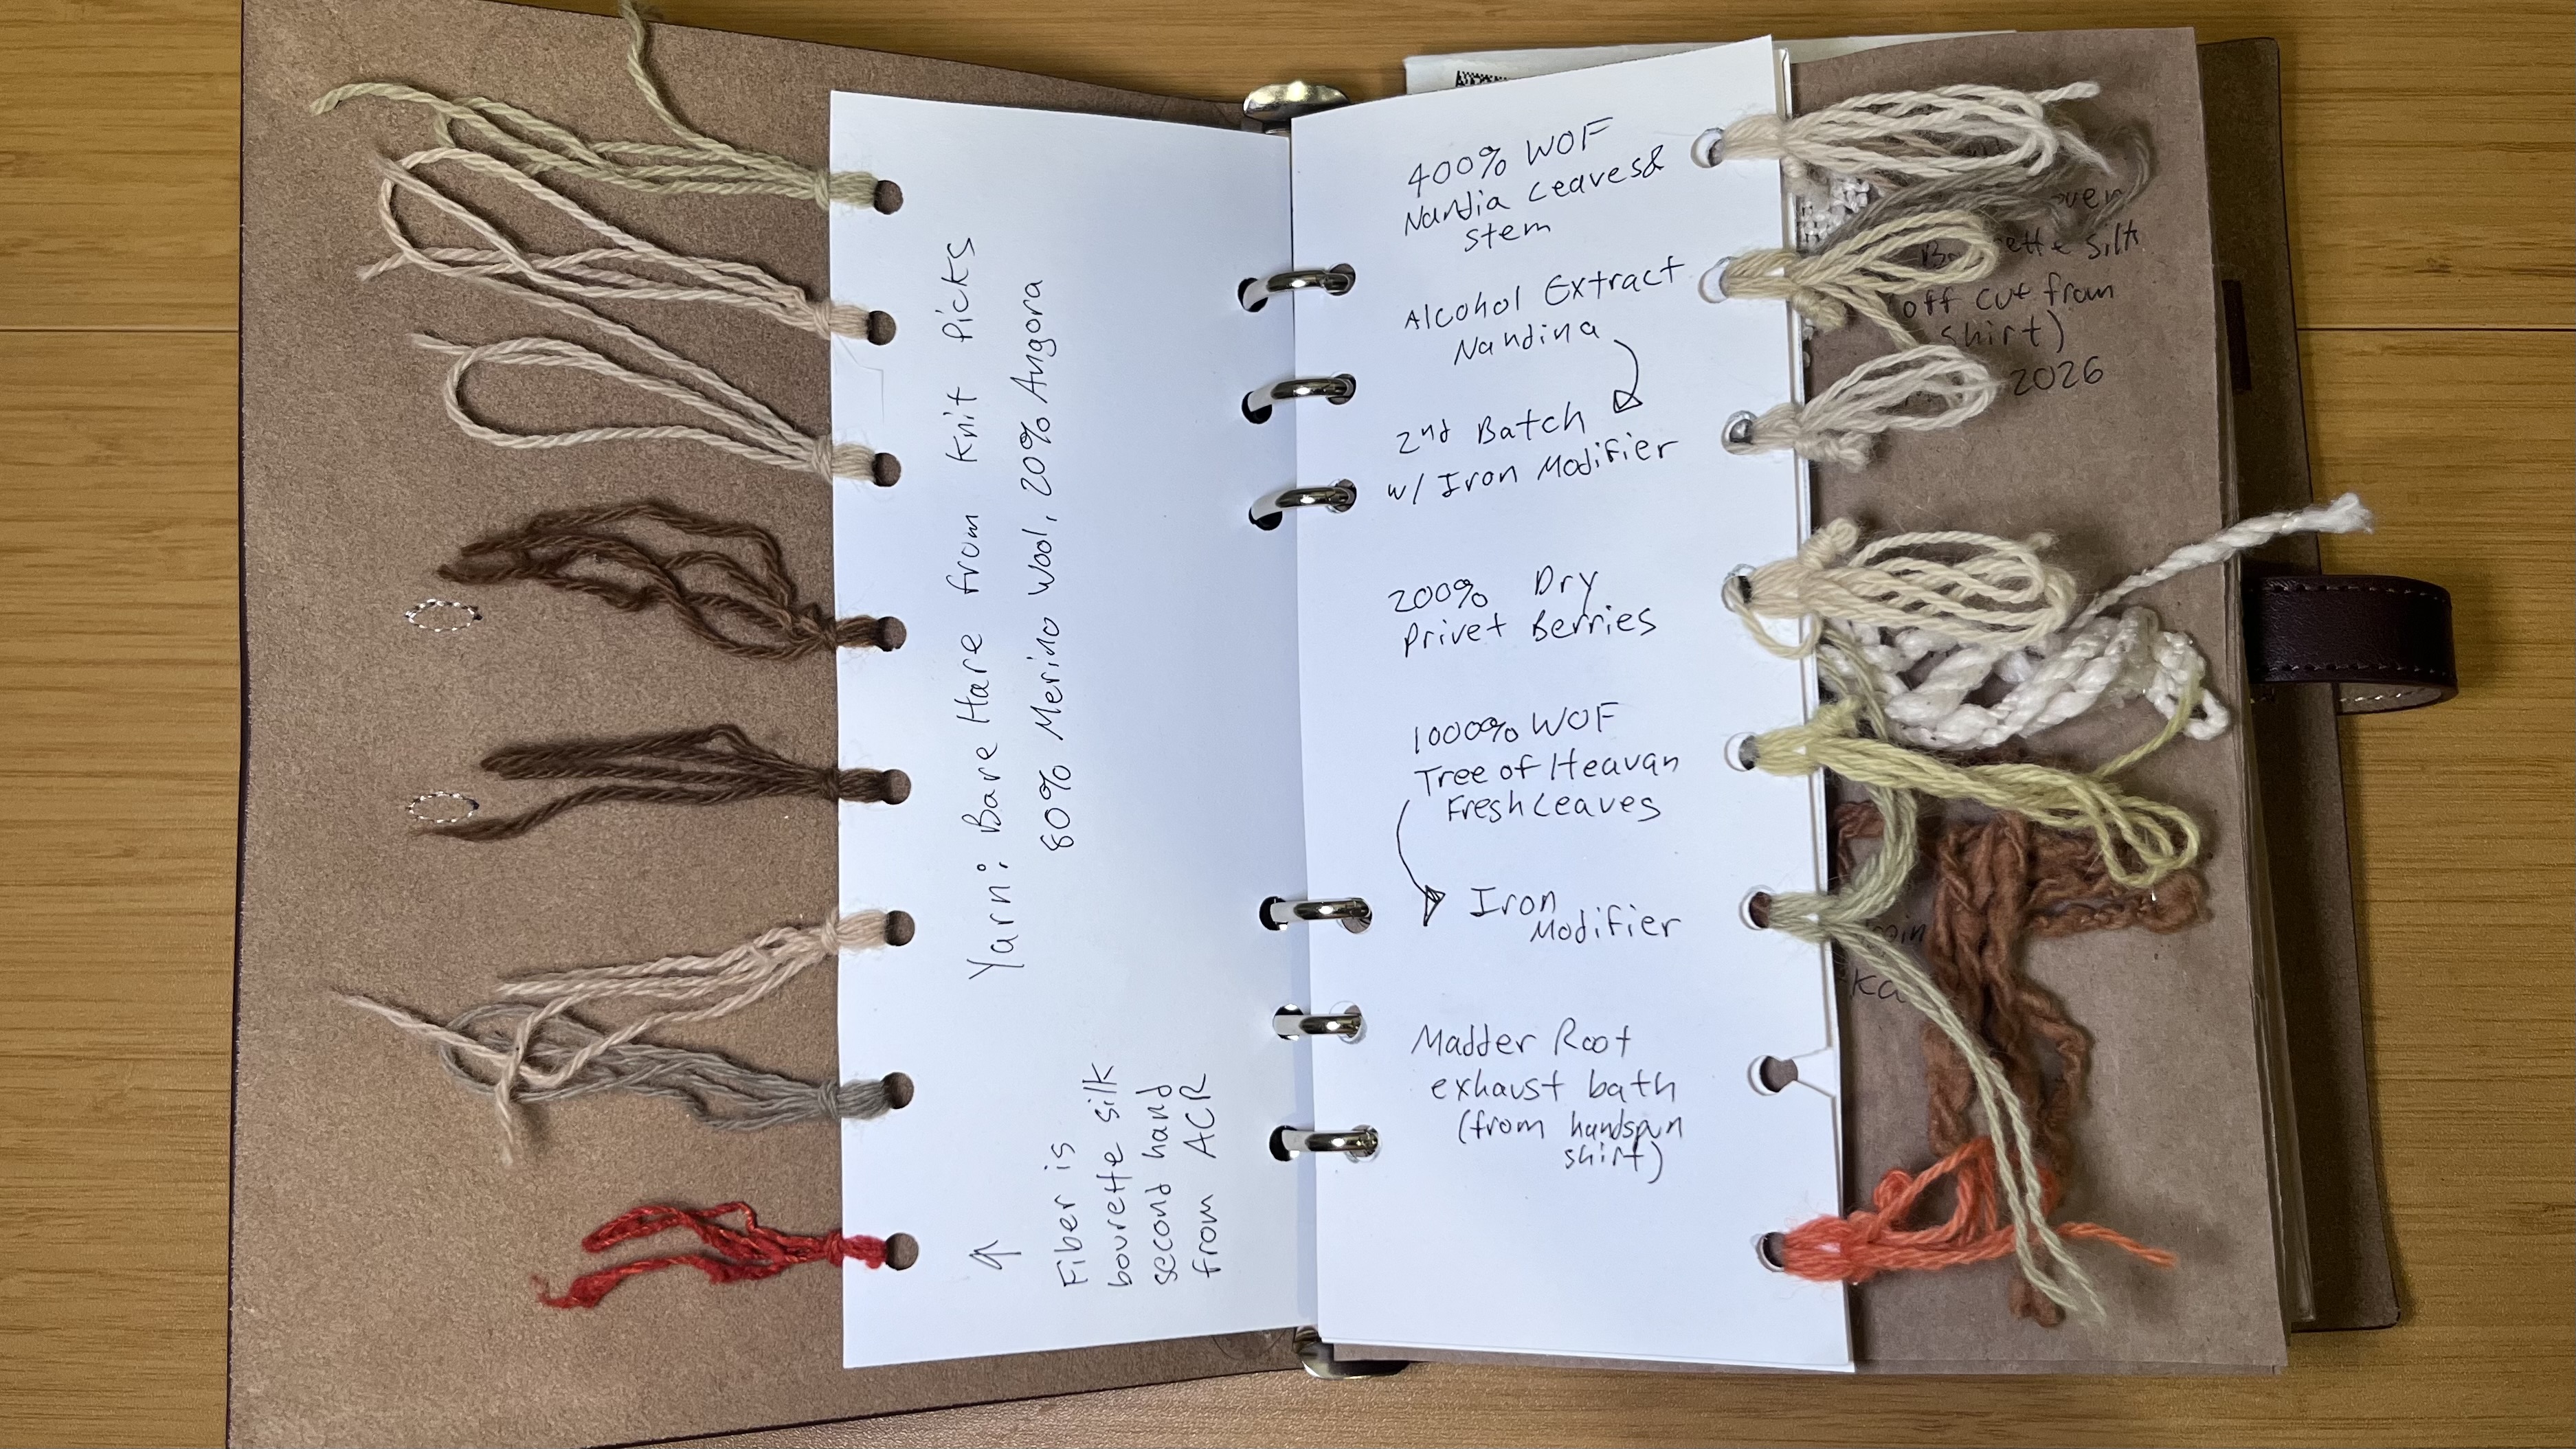 Yarn: Bare Hare from Knit Picks
80% Merino Wool, 20% Angora
↑
Fiber is
bourette silk
second hand
from ACR
400% WOF
Nandia Leaves &
stem
Alcohol Extract
Nandina
2nd Batch
w/ Iron Modifier
200% Dry
Privet Berries
1000% WOF
Tree of Heavan
Fresh Leaves
Iron
Modifier
Madder Root
exhaust bath
(from handspun
shirt)
silk
off cut from
shirt)
2026